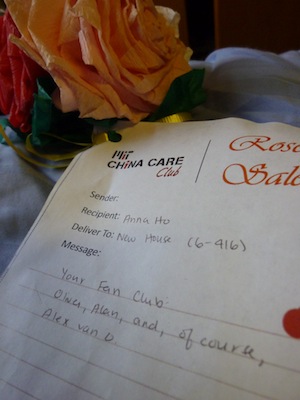 MIT
CHINA CARE
Club
Rose
Sale
Sender:
Recipient: Anna Ho
Deliver To: New House (6-416)
Message:
Your Fan Club:
Oliver, Alan, and, of course,
Alex van D.